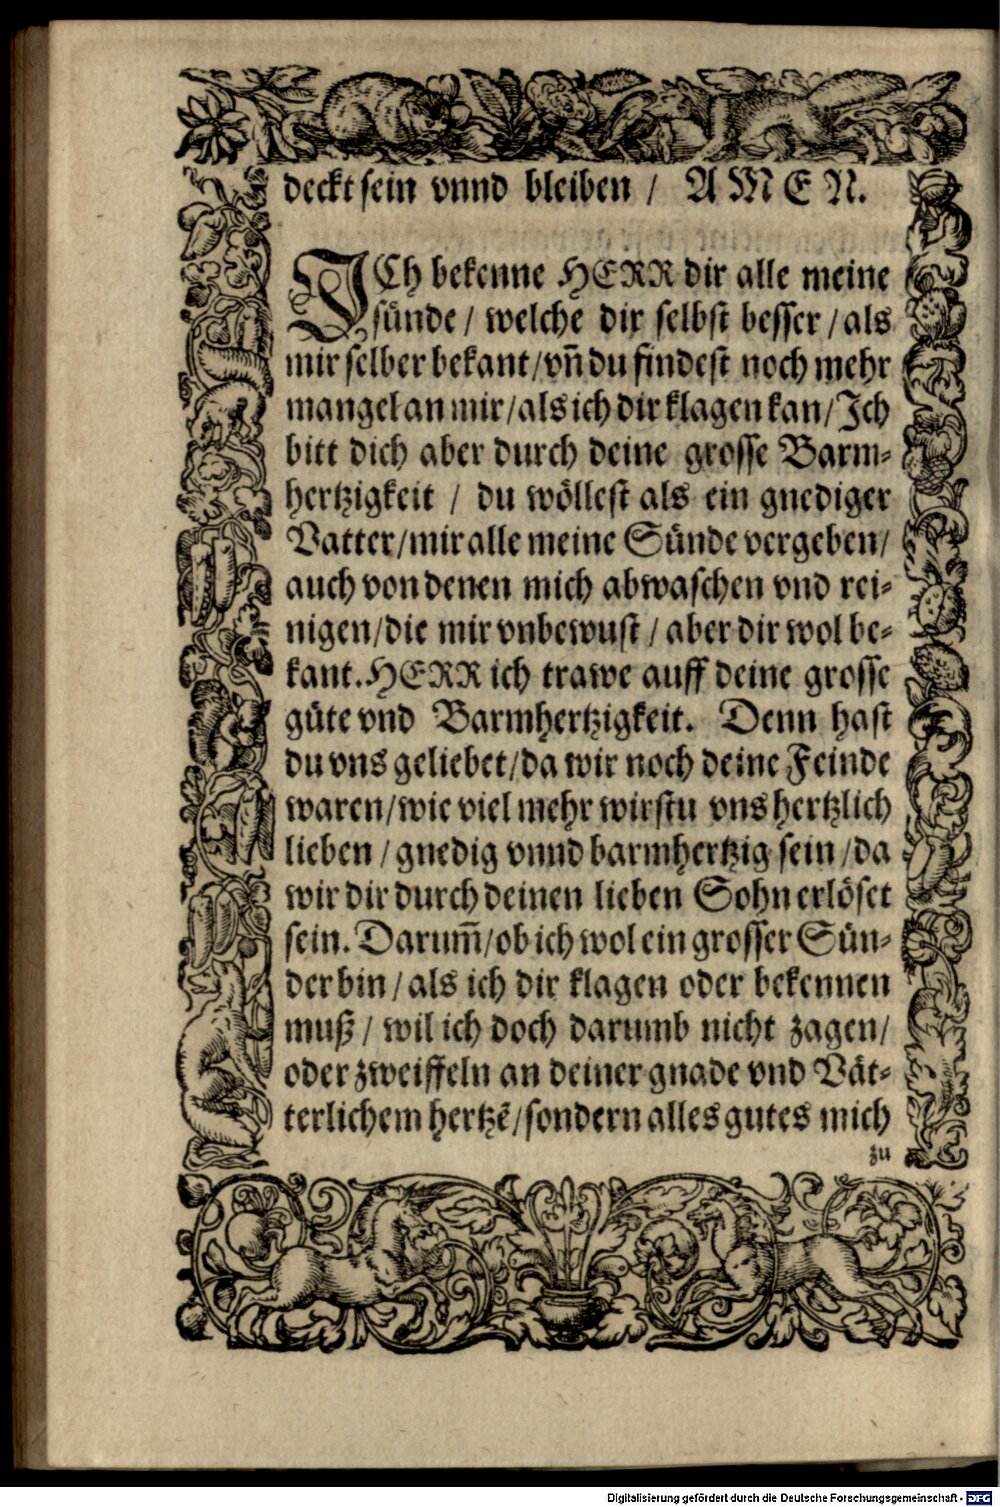 deckt sein vnnd bleiben / A M E N.
ICh bekenne HERR dir alle meine
sünde / welche dir selbst besser / als
mir selber bekant / vn̄ du findest noch mehr
mangel an mir / als ich dir klagen kan / Ich
bitt dich aber durch deine grosse Barm-
hertzigkeit / du wöllest als ein gnediger
Vatter / mir alle meine Sünde vergeben /
auch von denen mich abwaschen vnd rei-
nigen / die mir vnbewust / aber dir wol be-
kant. HERR ich trawe auff deine grosse
güte vnd Barmhertzigkeit. Denn hast
du vns geliebet / da wir noch deine Feinde
waren / wie viel mehr wirstu vns hertzlich
lieben / gnedig vnnd barmhertzig sein / da
wir dir durch deinen lieben Sohn erlöset
sein. Darum̄ / ob ich wol ein grosser Sün-
der bin / als ich dir klagen oder bekennen
muß / wil ich doch darumb nicht zagen /
oder zweiffeln an deiner gnade vnd Vät-
terlichem hertzē / sondern alles gutes mich
zu
Digitalisierung gefördert durch die Deutsche Forschungsgemeinschaft - DFG